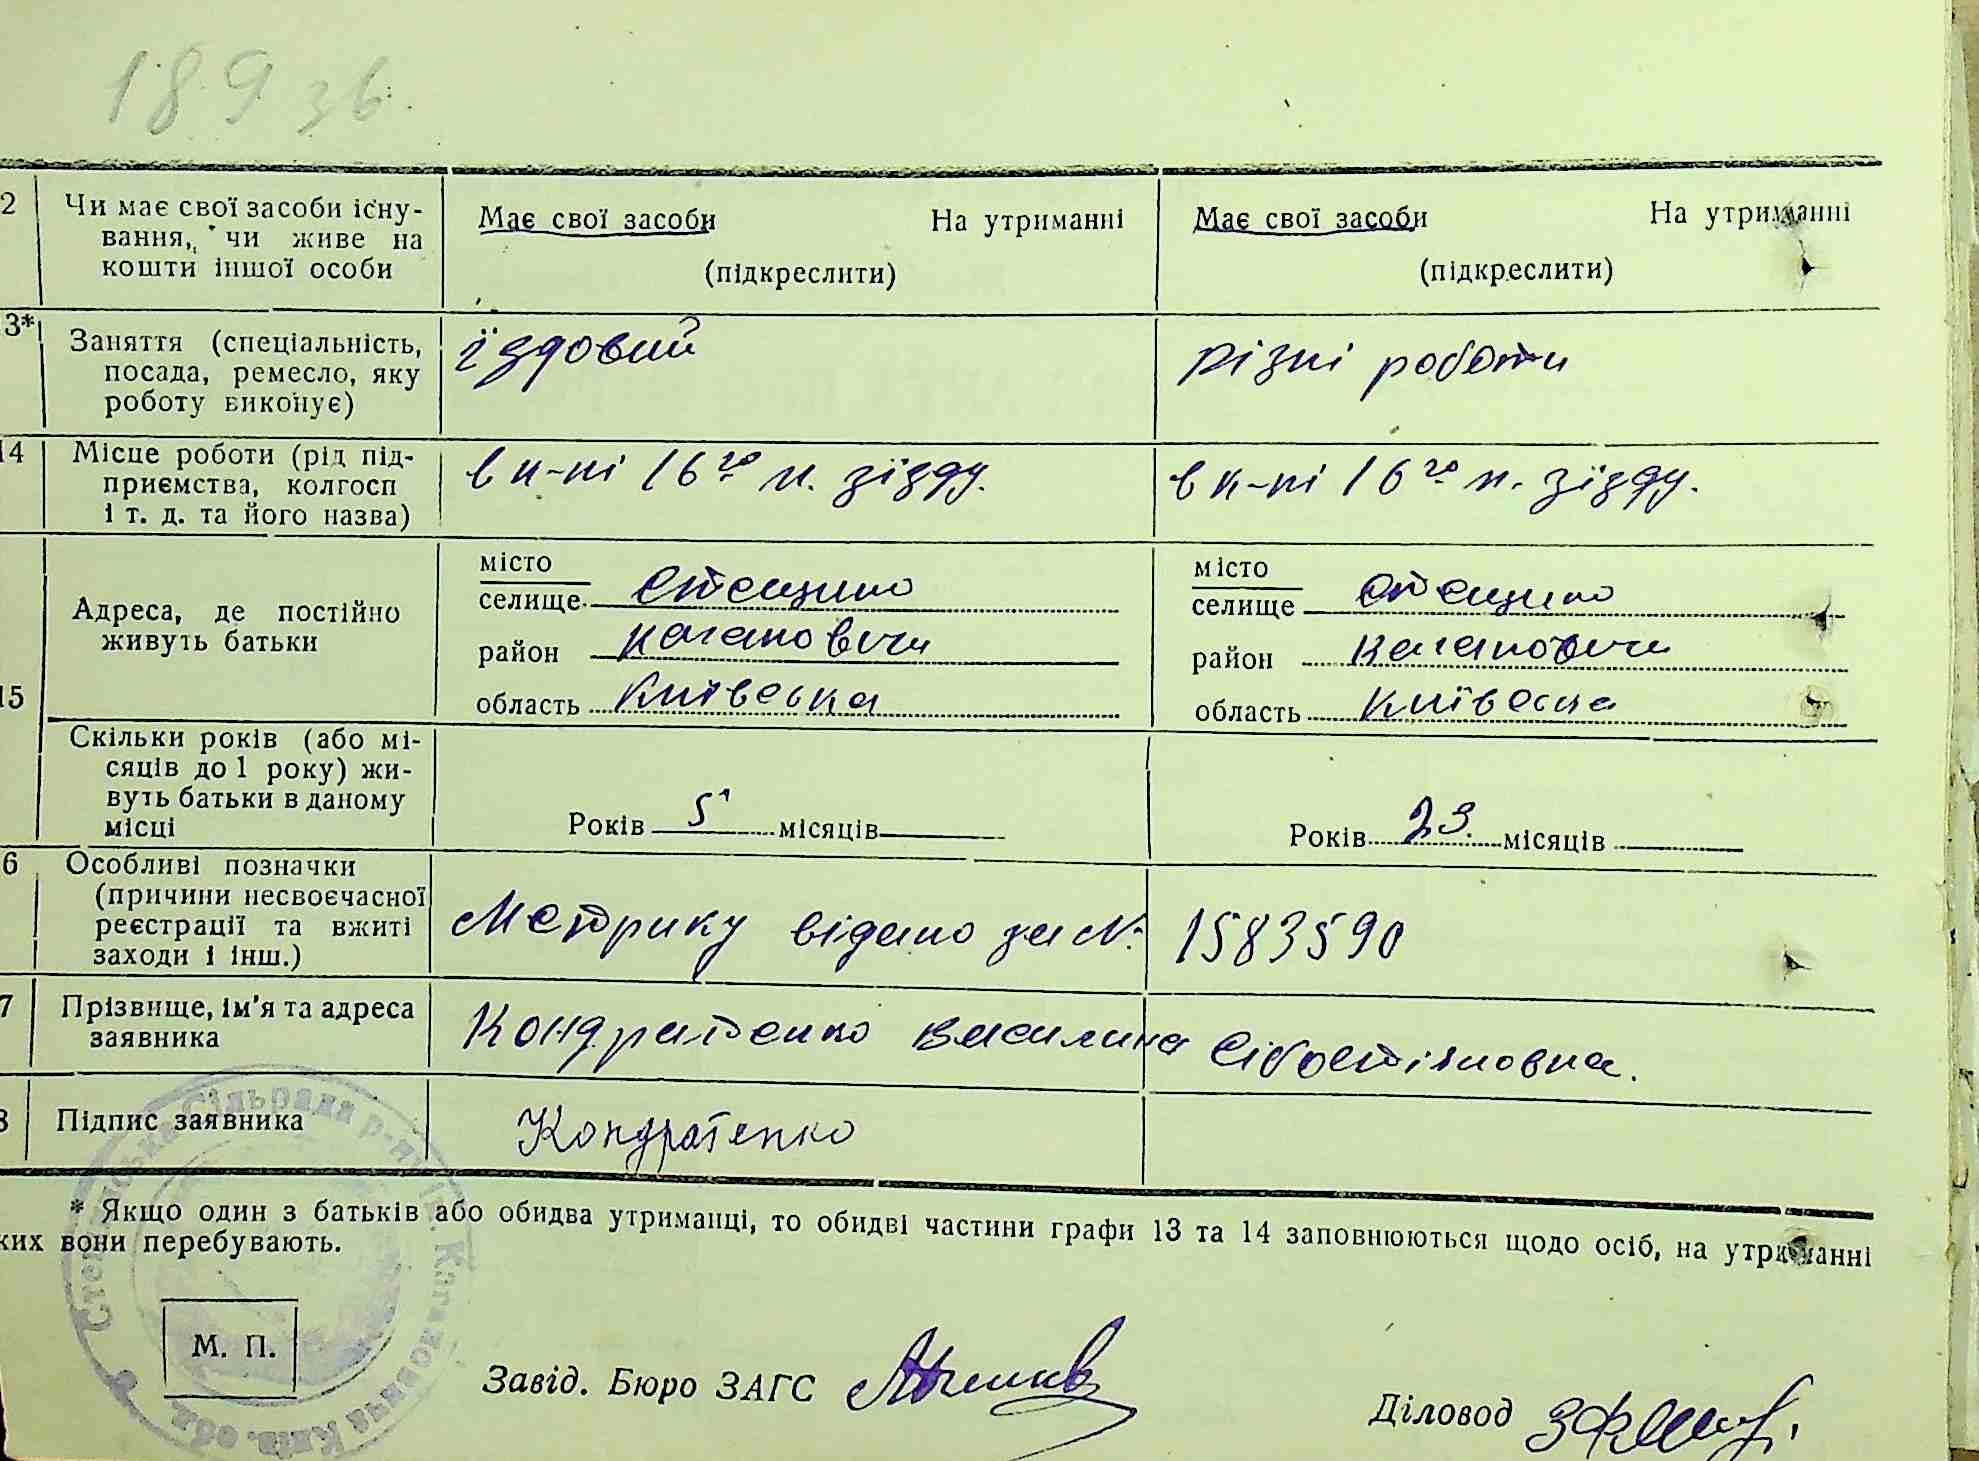 189 зв.
2 Чи має свої засоби існу-
вання, чи живе на
кошти іншої особи
Має свої засоби На утриманні
(підкреслити)
Має свої засоби На утриманні
(підкреслити)
3* Заняття (спеціальність,
посада, ремесло, яку
роботу виконує)
їздовий
різні роботи
14 Місце роботи (рід під-
приємства, колгосп
і т. д. та його назва)
в к-пі 16го п. зїзду.
в к-пі 16го п. зїзду.
15 Адреса, де постійно
живуть батьки
місто
селище Стещино
район Кагановичи
область Київська
місто
селище Стещино
район Кагановичи
область Київська
Скільки років (або мі-
сяців до 1 року) жи-
вуть батьки в даному
місці
Років 5 місяців
Років 23 місяців
6 Особливі позначки
(причини несвоєчасної
реєстрації та вжиті
заходи і інш.)
Метрику відано за № 1583590
7 Прізвище, ім'я та адреса
заявника
Кондратенко Василина Сівостіяновна.
8 Підпис заявника
Кондратенко
* Якщо один з батьків або обидва утриманці, то обидві частини графи 13 та 14 заповнюються щодо осіб, на утриманні
ких вони перебувають.
М. П.
Завід. Бюро ЗАГС
Діловод